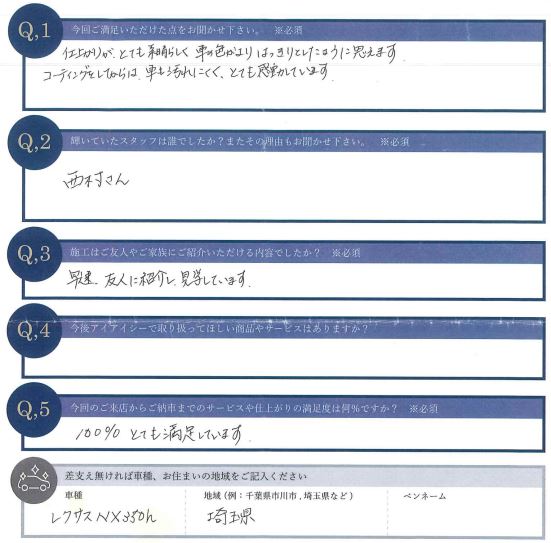 Q,1 今回ご満足いただけた点をお聞かせ下さい。 ※必須
仕上がりが、とても素晴らしく 車の色がより はっきりとしたように思えます
コーティングをしてからは、車も汚れにくく、とても感動しています.
Q,2 輝いていたスタッフは誰でしたか？またその理由もお聞かせ下さい。 ※必須
西村さん
Q,3 施工はご友人やご家族にご紹介いただける内容でしたか？ ※必須
早速、友人に紹介し、見学しています.
Q,4 今後アイアイシーで取り扱ってほしい商品やサービスはありますか？
Q,5 今回のご来店からご納車までのサービスや仕上がりの満足度は何％ですか？ ※必須
100% とても満足しています.
差支え無ければ車種、お住まいの地域をご記入ください
車種 地域（例：千葉県市川市，埼玉県など） ペンネーム
レクサスNX350h 埼玉県